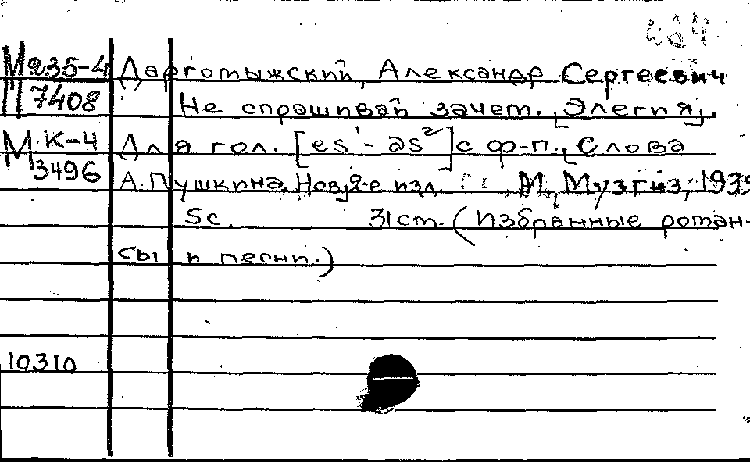 М 235-4 Даргомыжский, Александр Сергеевич
П 7408 Не спрашивай зачем. [Элегия].
М К-4 Для гол. [es¹ - as²] с ф-п., Слова
3496 А. Пушкина. Нов. изд. М., Музгиз, 1939
5с. 31см. (Избранные роман-
сы и песни.)
10310